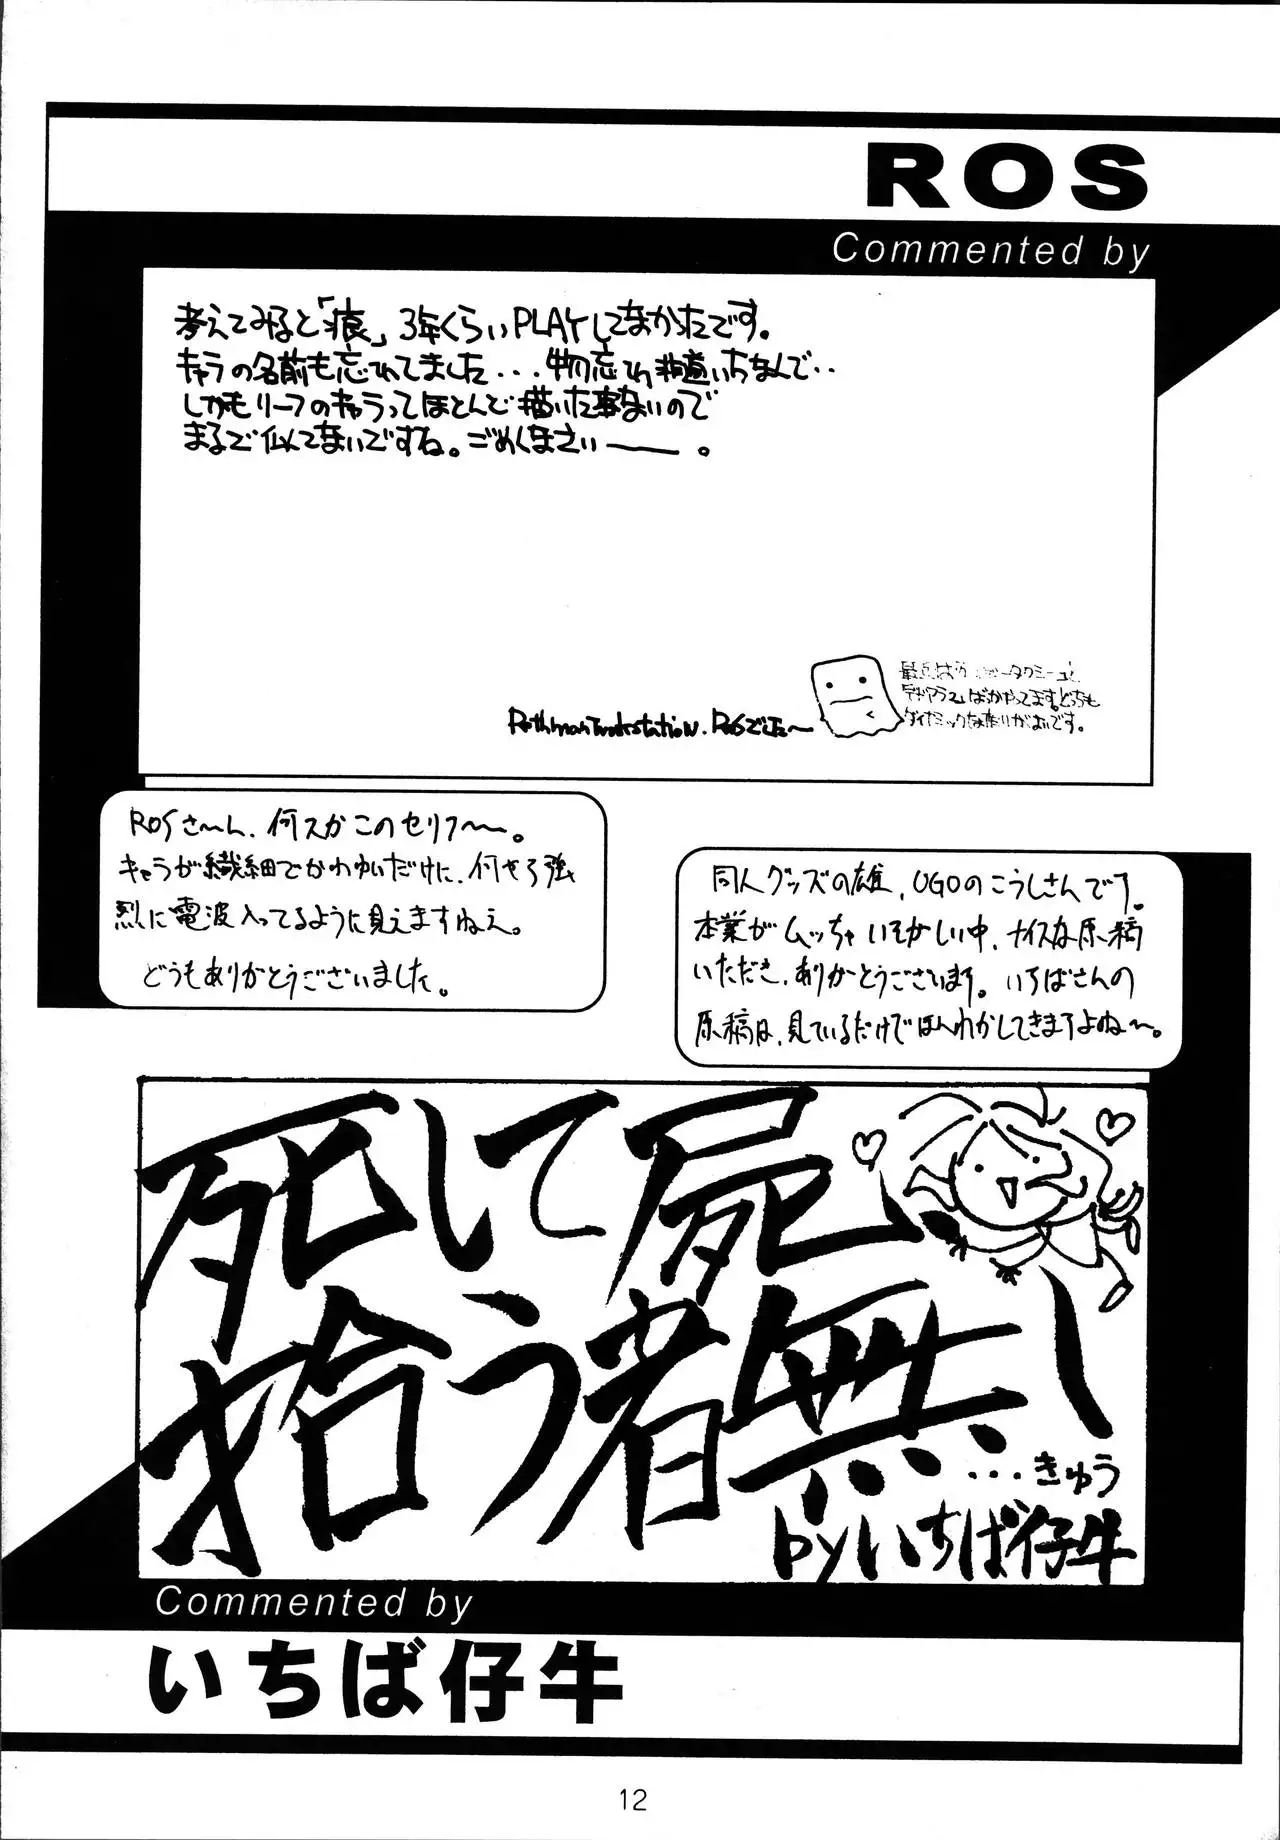 ROS
Commented by
考えてみると「痕」3年くらいPLAYしてなかったです。
キャラの名前も忘れてました...物忘れ
いちなんで..
しかもリーフのキャラってほとんど描いた事ないので
まるで似てないですね。ごめんなさいーー。
ばかやってます。どっちも
ダイナミックな
です。
ROSでした〜
ROSさーん、何スかこのセリフ〜〜。
キャラが繊細でかわゆいだけに、何やら強
烈に電波入ってるように見えますねえ。
どうもありがとうございました。
同人グッズの雄、UGOのこうしさんです。
本業がムッチャいそがしい中、ナイスな原稿
いただき、ありがとうございます。いちばさんの
原稿は、見ているだけでほんわかしてきますよね〜。
死して屍
拾う者無し
...きゅう
byいちば仔牛
Commented by
いちば仔牛
12